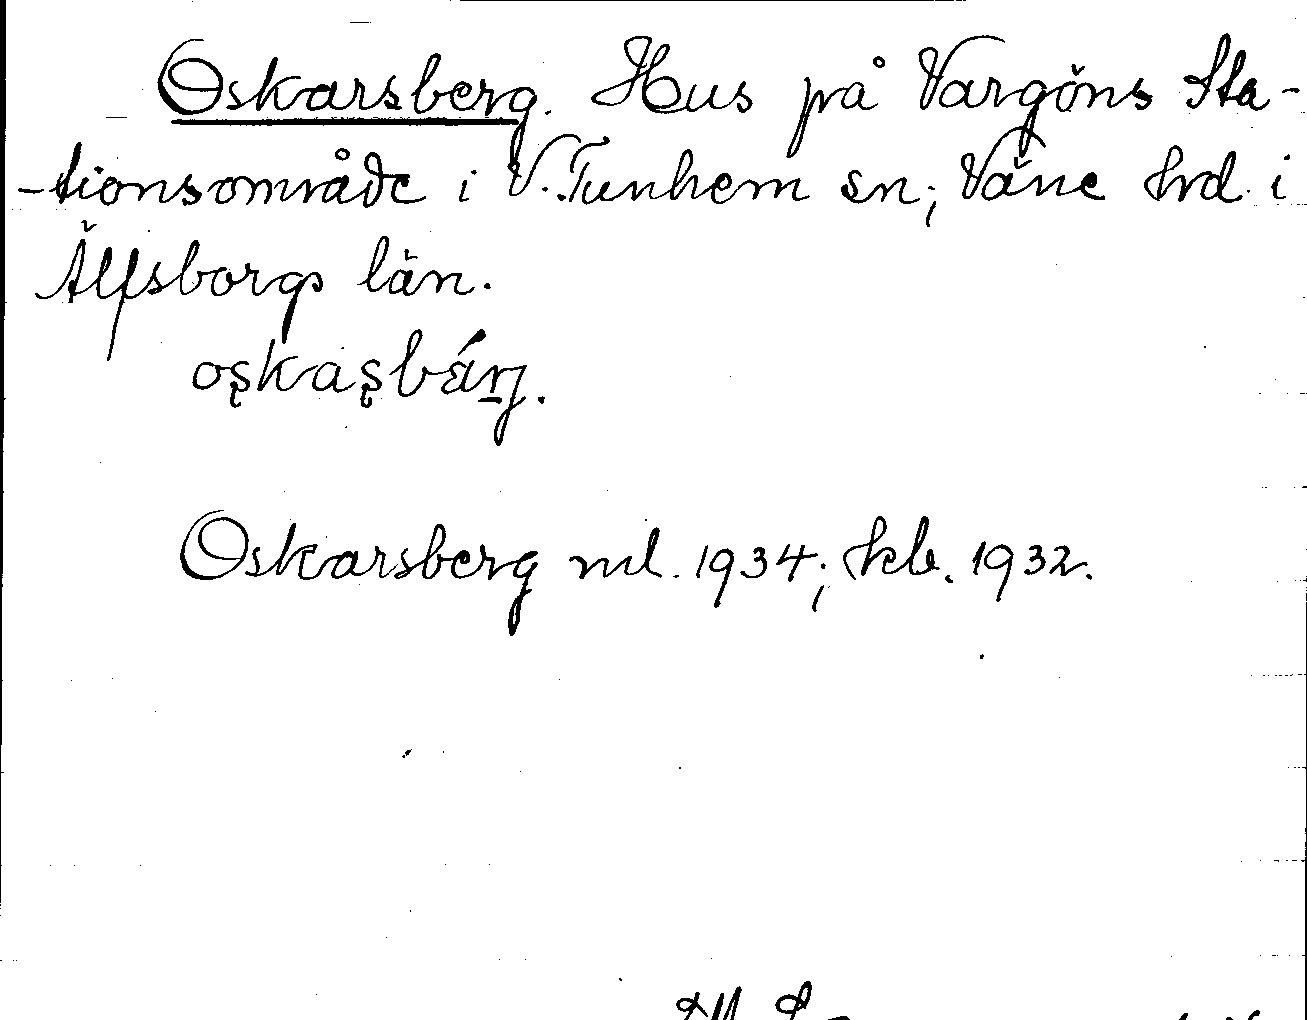 Oskarsberg. Hus på Vargöns Sta-
-tionsområde i V. Tunhem sn; Väne hrd. i
Älfsborgs län.
oşkaşbárj.
Oskarsberg ml. 1934; kb. 1932.